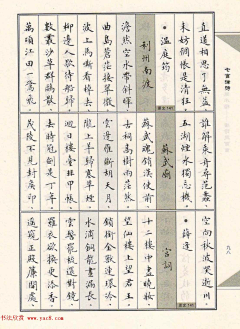 七言律詩
九八
直道相思了無益
未妨惆悵是清狂
·溫庭筠
利州南渡
澹然空水帶斜暉
曲島蒼茫接翠微
波上馬嘶看棹去
柳邊人歇待船歸
數叢沙草群鷗散
萬頃江田一鷺飛
誰解乘舟尋范蠡
五湖煙水獨忘機
蘇武廟
蘇武魂銷漢使前
古祠高樹兩茫然
雲邊雁斷胡天月
隴上羊歸塞草煙
迴日樓臺非甲帳
去時冠劍是丁年
茂陵不見封侯印
空向秋波哭逝川
·薛逢
宮詞
十二樓中盡曉妝
望仙樓上望君王
鎖銜金獸連環冷
水滴銅龍晝漏長
雲髻罷梳還對鏡
羅衣欲換更添香
遙窺正殿簾開處